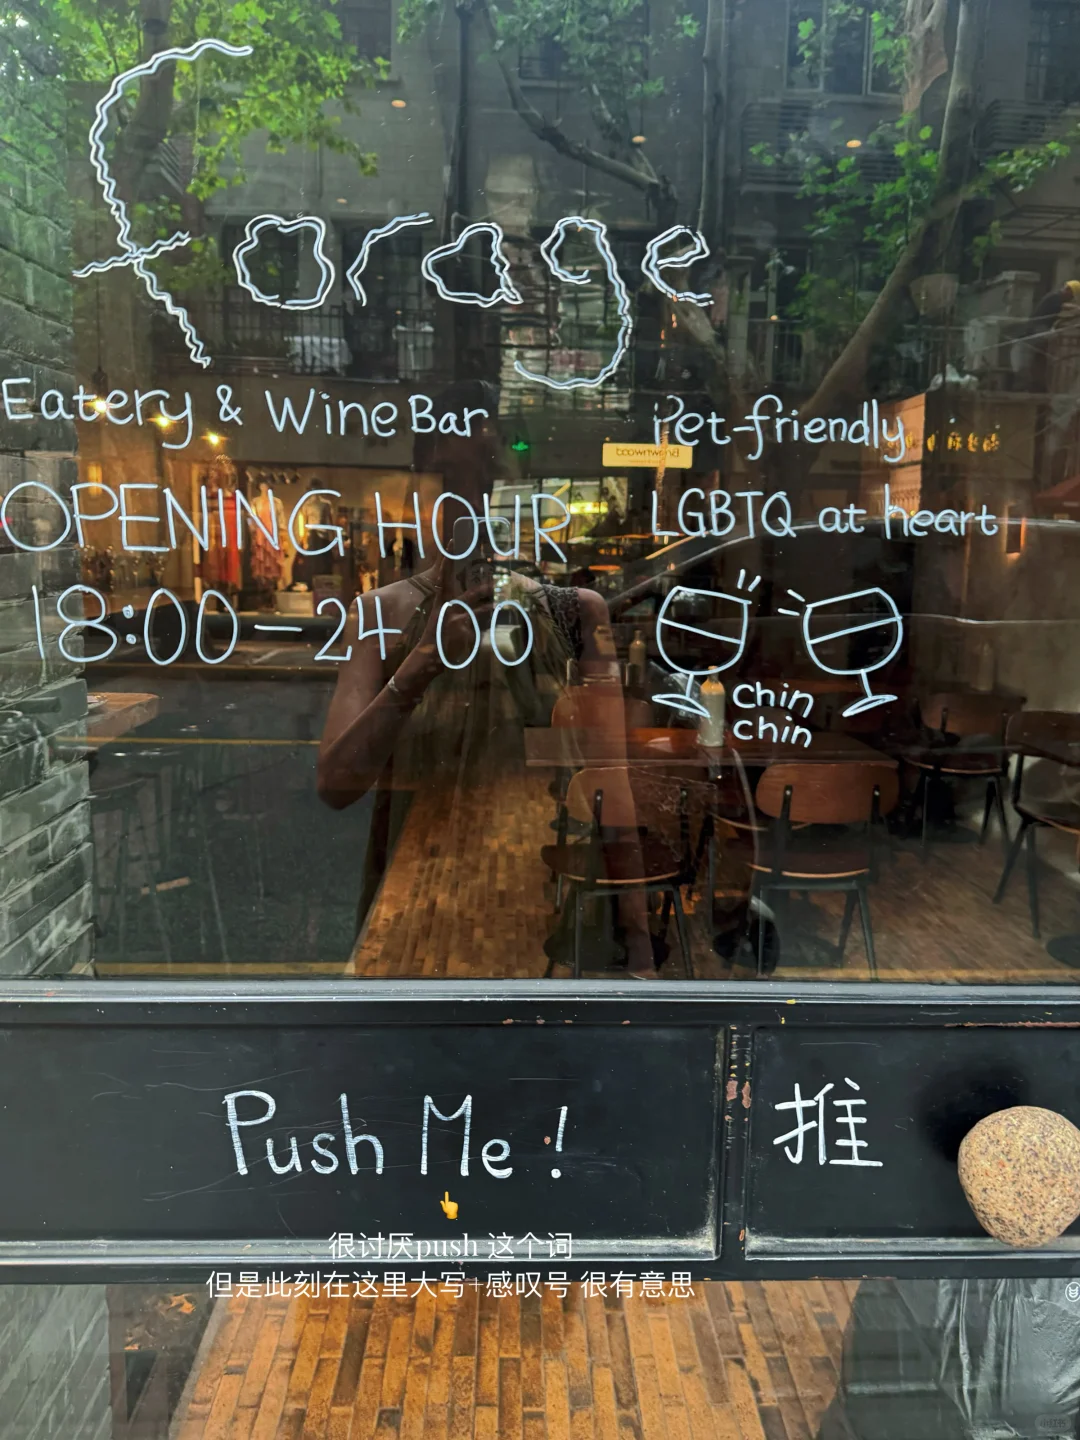 forage
Eatery & Wine Bar
OPENING HOUR
18:00-24 00
Pet-friendly
LGBTQ at heart
chin
chin
Push Me !
推
很讨厌push 这个词
但是此刻在这里大写+感叹号 很有意思
小红书